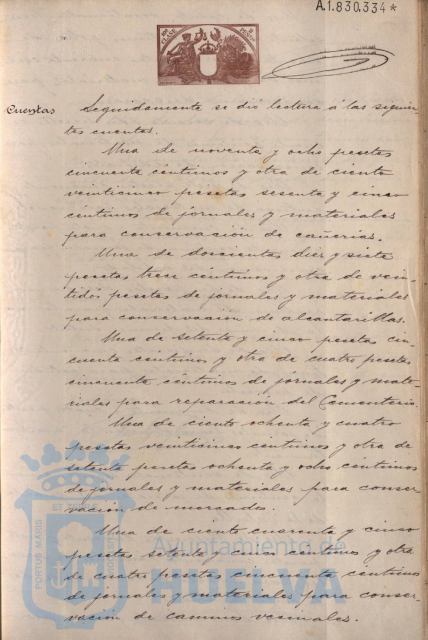 A.1.830.334*
Cuentas
Seguidamente se dió lectura á las siguien-
tes cuentas.
Una de noventa y ocho pesetas
cincuenta céntimos y otra de ciento
veinticinco pesetas sesenta y cinco
céntimos de jornales y materiales
para conservación de cañerías.
Una de doscientas diez y siete
pesetas trece céntimos y otra de vein-
tidós pesetas de jornales y materiales
para conservación de alcantarillas.
Una de setenta y cinco pesetas cin-
cuenta céntimos y otra de cuatro pesetas
cincuenta céntimos de jornales y mate-
riales para reparación del Cementerio.
Una de ciento ochenta y cuatro
pesetas veinticinco céntimos y otra de
setenta pesetas ochenta y ocho céntimos
de jornales y materiales para conser-
vación de mercados.
Una de ciento cuarenta y cinco
pesetas setenta y cinco céntimos y otra
de cuatro pesetas cincuenta céntimos
de jornales y materiales para conser-
vación de caminos vecinales.
Ayuntamiento de
HUELVA
PORTUS MARIS ET